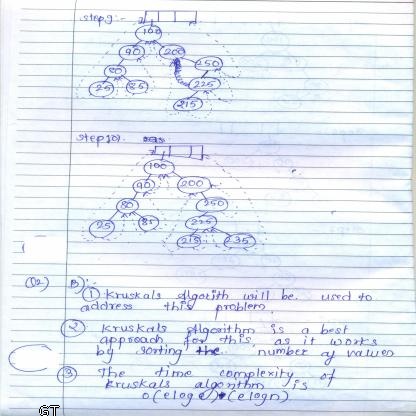 step9:-
100
90 200
80 250
25 85 225
215
step10:-
100
90 200
80 250
25 85 225
215 235
Q2) B):-
① Kruskals Algorith will be used to
address this problem
② Kruskals Algorithm is a best
approach for this, as it works
by sorting the number of values
③ The time complexity of
Kruskals algorithm is
O(eloge) (elogn)
GT